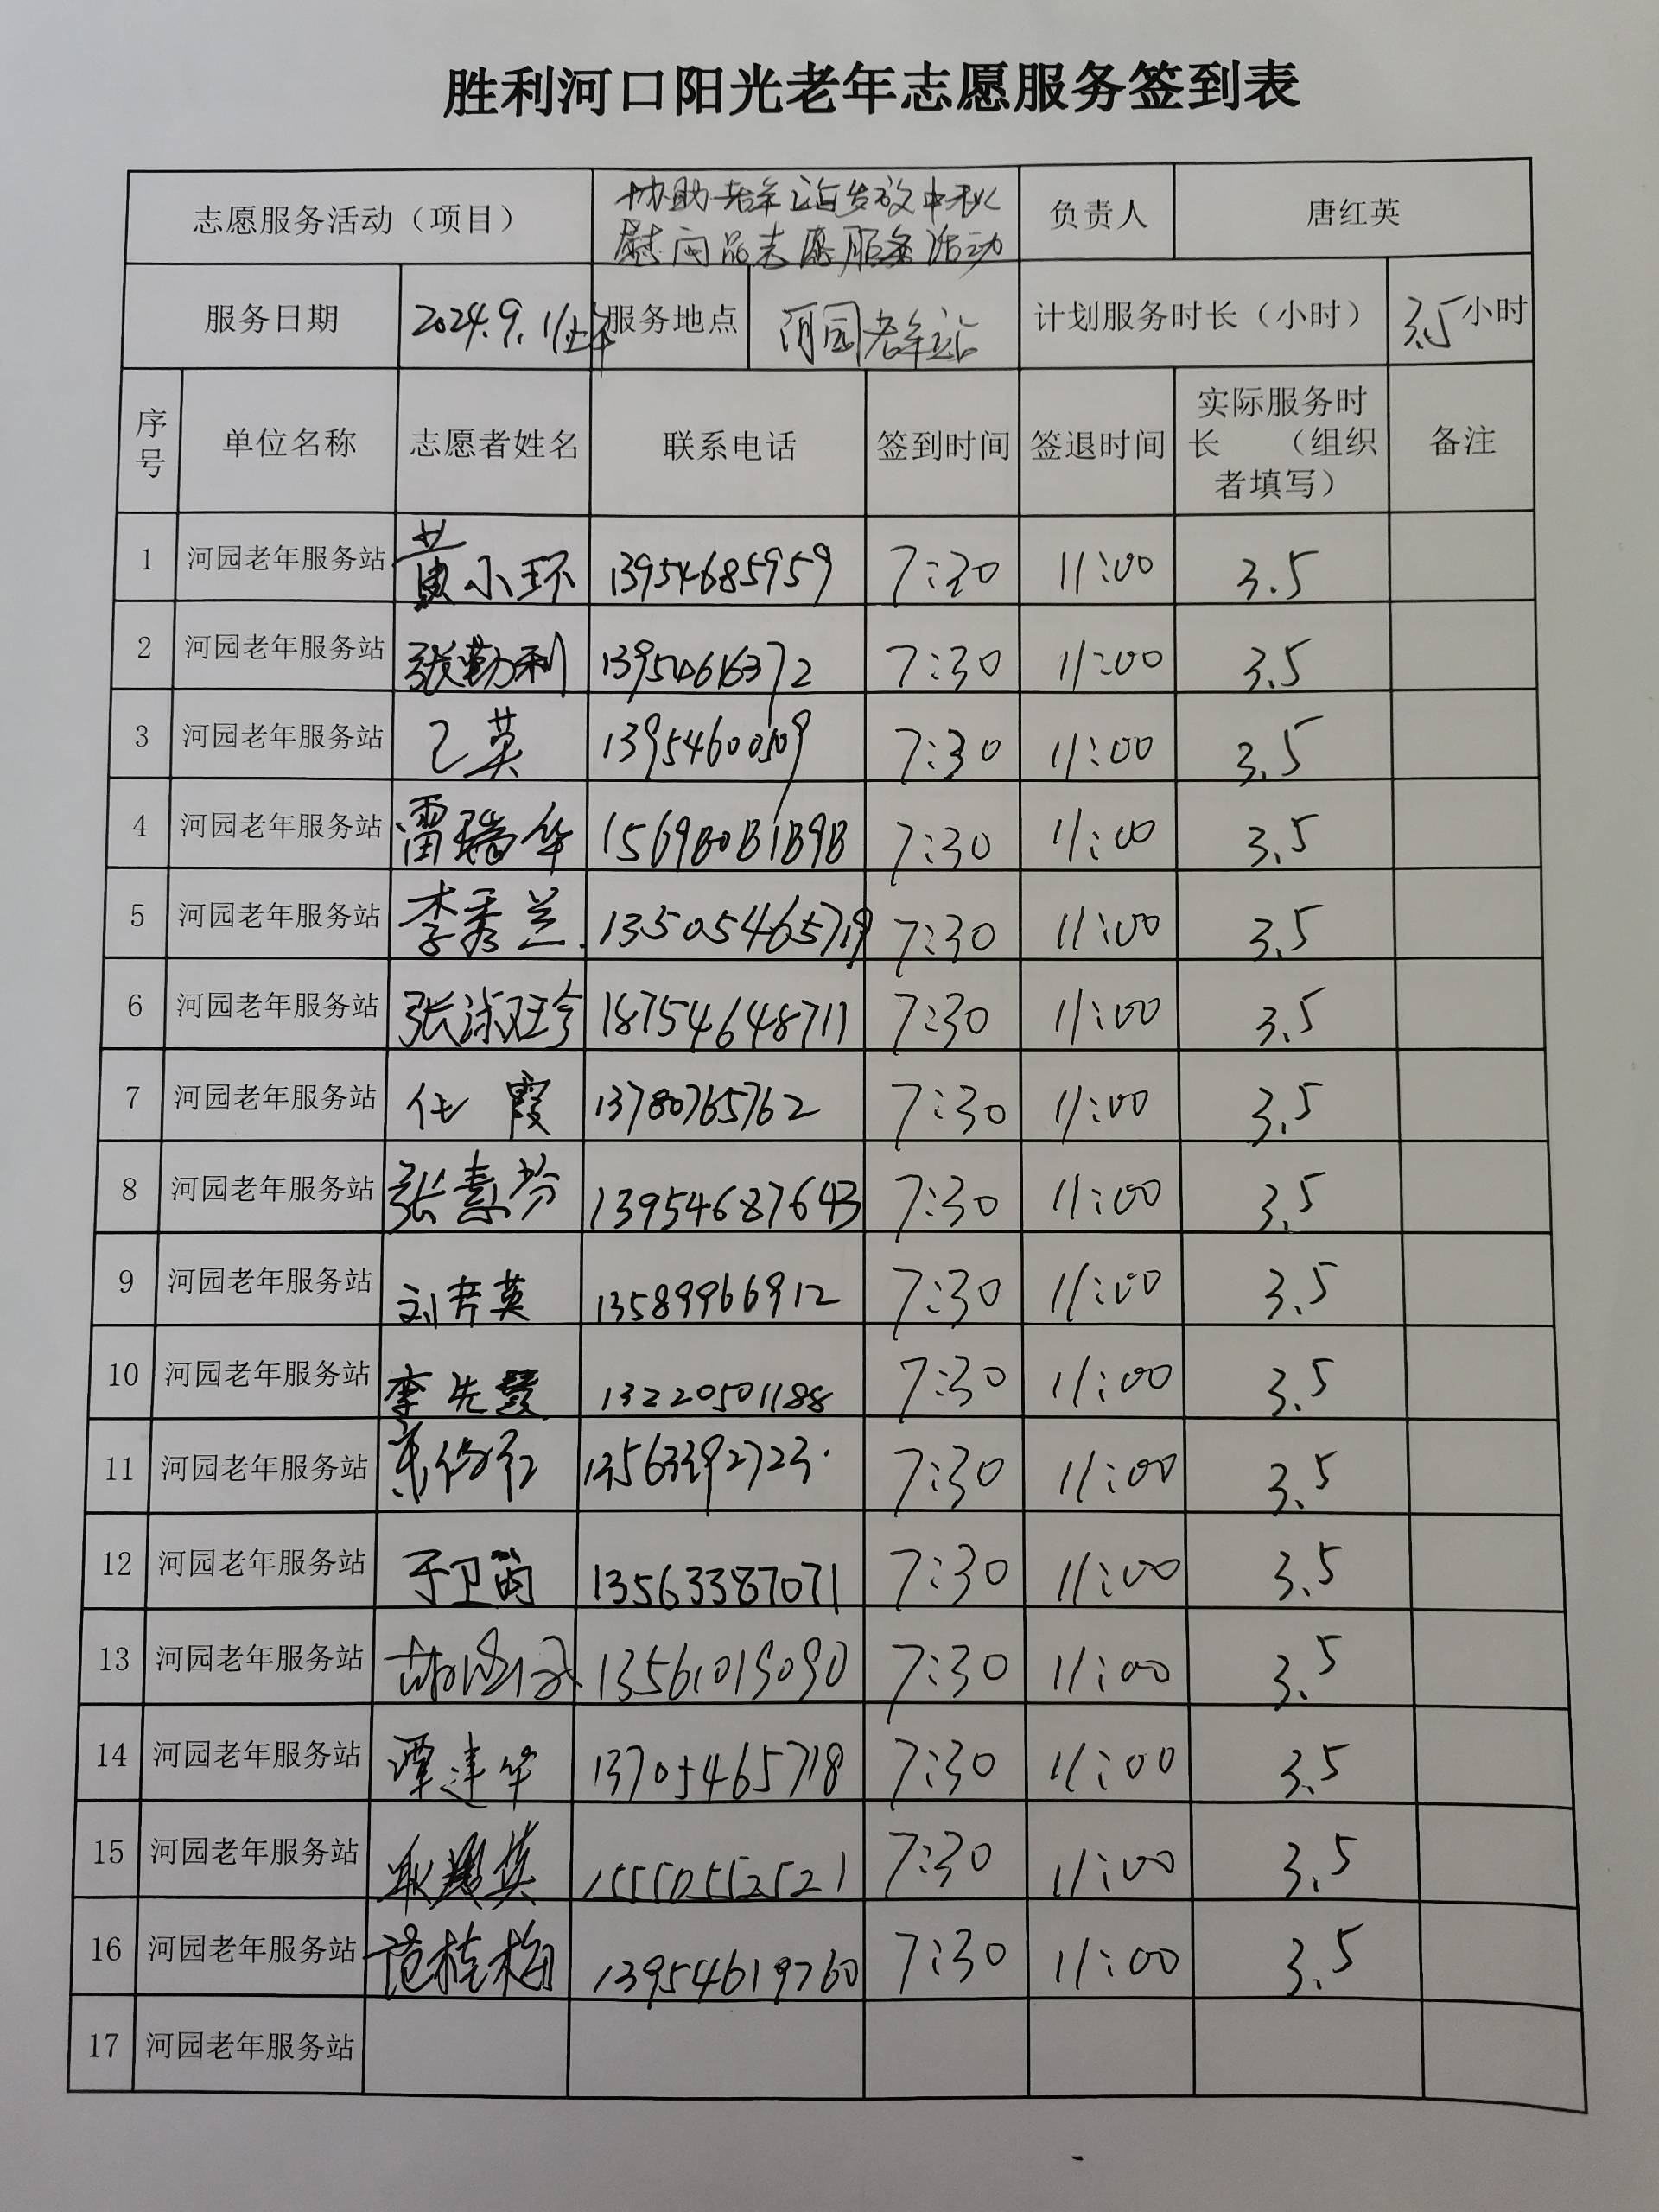 胜利河口阳光老年志愿服务签到表
志愿服务活动（项目） 协助老年站发放中秋 负责人 唐红英
慰问品志愿服务活动
服务日期 2024.9.11上午 服务地点 河园老年站 计划服务时长（小时） 3.5小时
序号 单位名称 志愿者姓名 联系电话 签到时间 签退时间 实际服务时长 （组织者填写） 备注
1 河园老年服务站 黄小环 13954685959 7:30 11:00 3.5
2 河园老年服务站 张勤利 7:30 11:00 3.5
3 河园老年服务站 7:30 11:00 3.5
4 河园老年服务站 雷瑞华 7:30 11:00 3.5
5 河园老年服务站 李秀兰 13505465719 7:30 11:00 3.5
6 河园老年服务站 张淑珍 18754648711 7:30 11:00 3.5
7 河园老年服务站 任霞 13780765762 7:30 11:00 3.5
8 河园老年服务站 张素芬 13954687643 7:30 11:00 3.5
9 河园老年服务站 13589966912 7:30 11:00 3.5
10 河园老年服务站 李先慧 13220501188 7:30 11:00 3.5
11 河园老年服务站 13563392723 7:30 11:00 3.5
12 河园老年服务站 13563387071 7:30 11:00 3.5
13 河园老年服务站 13561019090 7:30 11:00 3.5
14 河园老年服务站 谭建华 13705465718 7:30 11:00 3.5
15 河园老年服务站 15550552521 7:30 11:00 3.5
16 河园老年服务站 范桂梅 13954619760 7:30 11:00 3.5
17 河园老年服务站